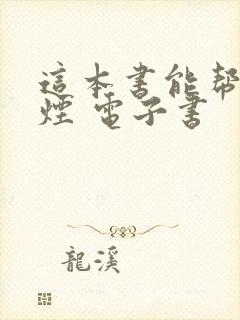 這本書能帮
煙 電子書
龍溪